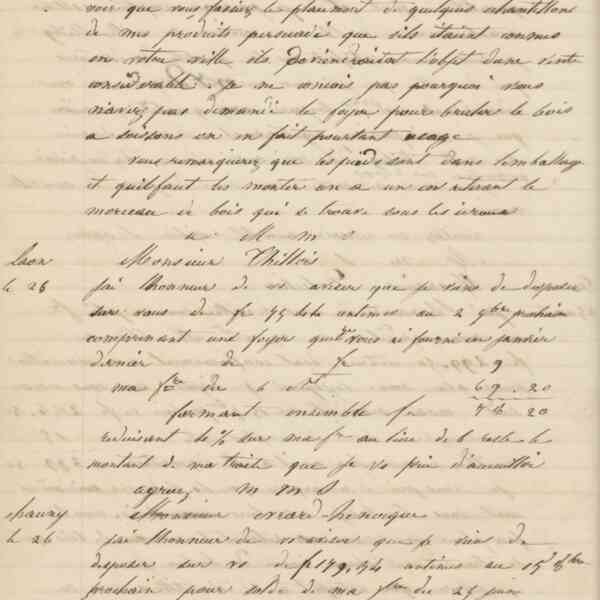 voir que vous fassiez le placement de quelques echantillons
de mes produits persuadé que s'ils étaient connus
en votre ville ils deviendraient l'objet d'une vente
considerable. je ne conçois pas pourquoi vous
n'avez pas demandé le foyer pour bruler le bois
a soissons on en fait pourtant usage
vous remarquerez que les pieds sont dans l'emballage
et qu'il faut les monter un a un en retirant le
morceau de bois qui se trouve sous les
a M m s
Laon Monsieur Thillois
le 26 j'ai l'honneur de vs aviser que je viens de disposer
sur vous de fr 75 centimes au 2 9bre prochain
comprenant une foyer que je vous ai fourni en janvier
dernier de fr 9
ma fre du 6 69.20
formant ensemble fr 78 20
reduisant de % sur ma fre au lieu de 6 reste le
montant de ma traite que je vs prie d'accueillir
agreez m m s
chauny Monsieur evrard-henocque
le 26 j'ai l'honneur de vs aviser que je viens de
disposer sur vs de fr 179,34 centimes au 15 8bre
prochain pour solde de ma fre du 25 juin